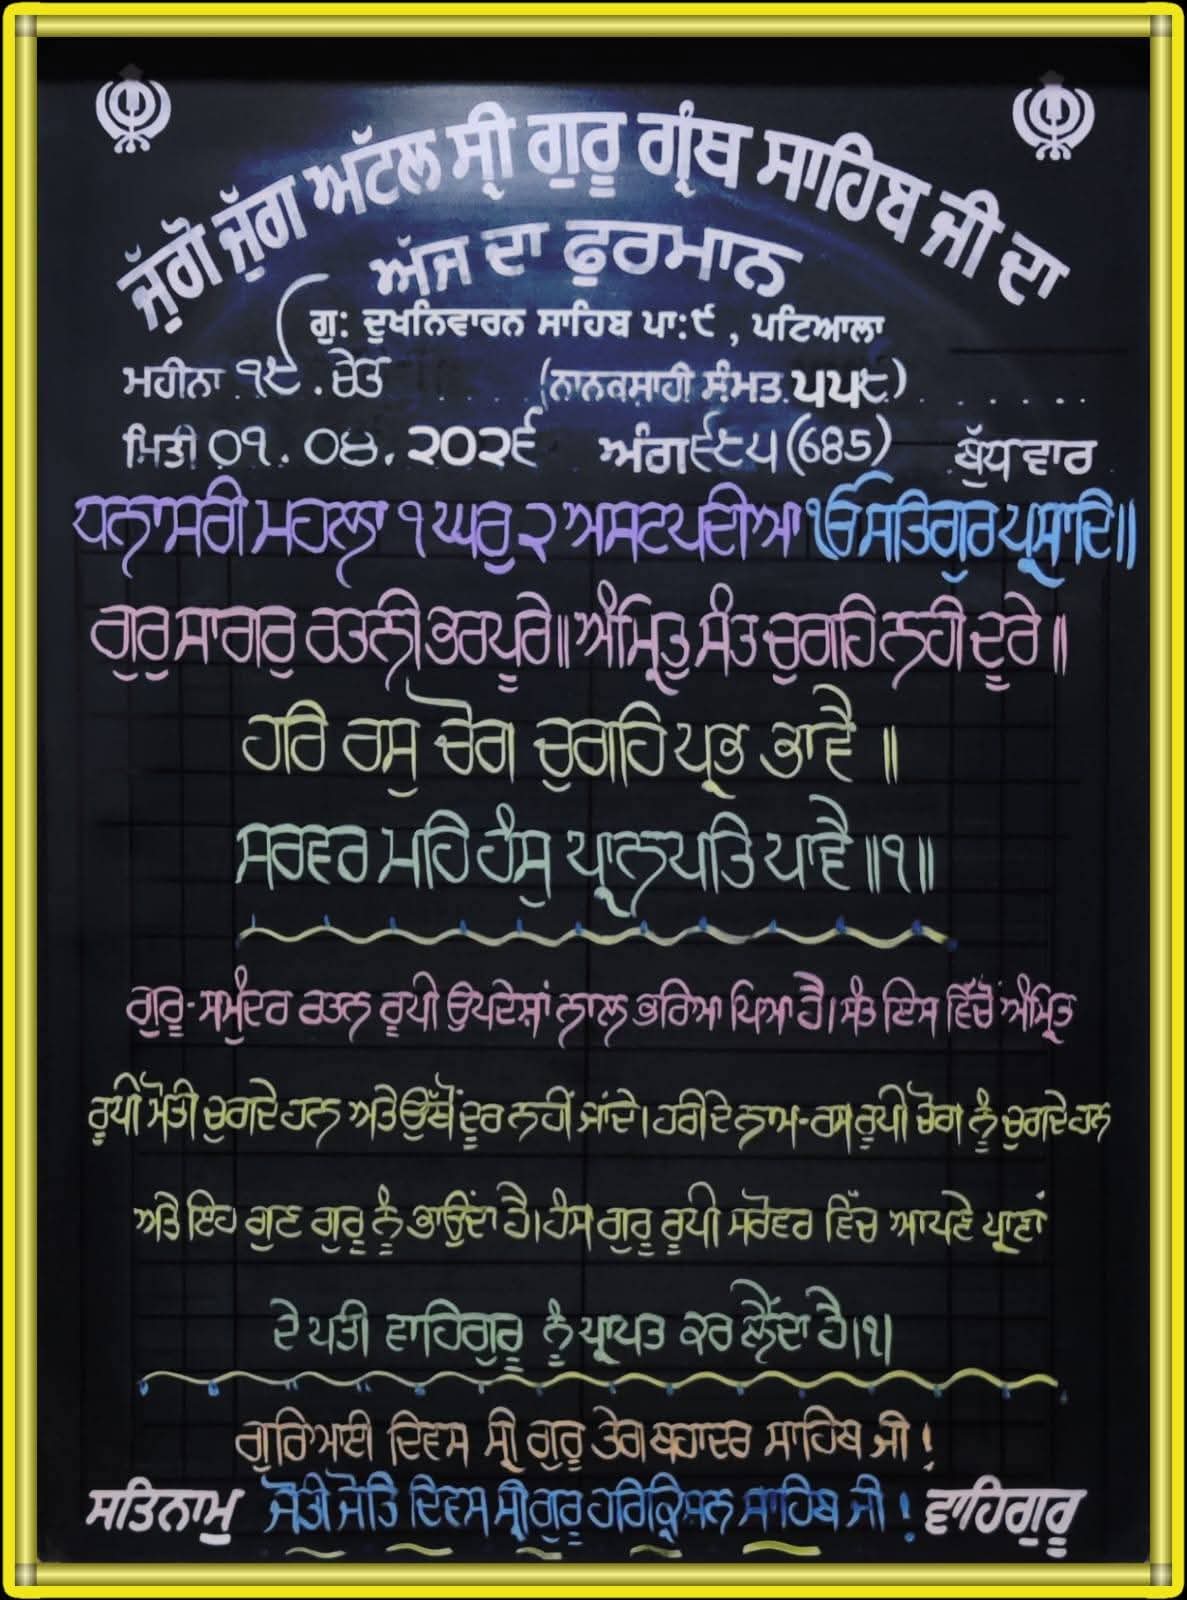 ਜੁੱਗੋ ਜੁੱਗ ਅਟੱਲ ਸ੍ਰੀ ਗੁਰੂ ਗ੍ਰੰਥ ਸਾਹਿਬ ਜੀ ਦਾ
ਅੱਜ ਦਾ ਫੁਰਮਾਨ
ਗੁ: ਦੁਖਨਿਵਾਰਨ ਸਾਹਿਬ ਪਾ:੯ , ਪਟਿਆਲਾ
ਮਹੀਨਾ ੧੯. ਚੇਤ (ਨਾਨਕਸ਼ਾਹੀ ਸੰਮਤ ੫੫੮)
ਮਿਤੀ ੦੧. ੦੪. ੨੦੨੬ ਅੰਗ ੬੮੫ (685) ਬੁੱਧਵਾਰ
ਧਨਾਸਰੀ ਮਹਲਾ ੧ ਘਰੁ ੨ ਅਸਟਪਦੀਆ ੴ ਸਤਿਗੁਰ ਪ੍ਰਸਾਦਿ॥
ਗੁਰੁ ਸਾਗਰੁ ਰਤਨੀ ਭਰਪੂਰੇ॥ ਅੰਮ੍ਰਿਤੁ ਸੰਤ ਚੁਗਹਿ ਨਹੀ ਦੂਰੇ॥
ਹਰਿ ਰਸੁ ਚੋਗ ਚੁਗਹਿ ਪ੍ਰਭ ਭਾਵੈ ॥
ਸਰਵਰ ਮਹਿ ਹੰਸੁ ਪ੍ਰਾਨਪਤਿ ਪਾਵੈ ॥੧॥
ਗੁਰੂ-ਸਮੁੰਦਰ ਰਤਨ ਰੂਪੀ ਉਪਦੇਸ਼ਾਂ ਨਾਲ ਭਰਿਆ ਪਿਆ ਹੈ। ਸੰਤ ਇਸ ਵਿੱਚੋਂ ਅੰਮ੍ਰਿਤ
ਰੂਪੀ ਮੋਤੀ ਚੁਗਦੇ ਹਨ ਅਤੇ ਉੱਥੋਂ ਦੂਰ ਨਹੀਂ ਜਾਂਦੇ। ਹਰੀ ਦੇ ਨਾਮ-ਰਸ ਰੂਪੀ ਚੋਗ ਨੂੰ ਚੁਗਦੇ ਹਨ
ਅਤੇ ਇਹ ਗੁਣ ਗੁਰੂ ਨੂੰ ਭਾਉਂਦਾ ਹੈ। ਹੰਸ ਗੁਰੂ ਰੂਪੀ ਸਰੋਵਰ ਵਿੱਚ ਆਪਣੇ ਪ੍ਰਾਣਾਂ
ਦੇ ਪਤੀ ਵਾਹਿਗੁਰੂ ਨੂੰ ਪ੍ਰਾਪਤ ਕਰ ਲੈਂਦਾ ਹੈ।੧।
ਗੁਰਿਆਈ ਦਿਵਸ ਸ੍ਰੀ ਗੁਰੂ ਤੇਗ ਬਹਾਦਰ ਸਾਹਿਬ ਜੀ !
ਸਤਿਨਾਮੁ ਜੋਤੀ ਜੋਤਿ ਦਿਵਸ ਸ੍ਰੀ ਗੁਰੂ ਹਰਿਕ੍ਰਿਸ਼ਨ ਸਾਹਿਬ ਜੀ ! ਵਾਹਿਗੁਰੂ